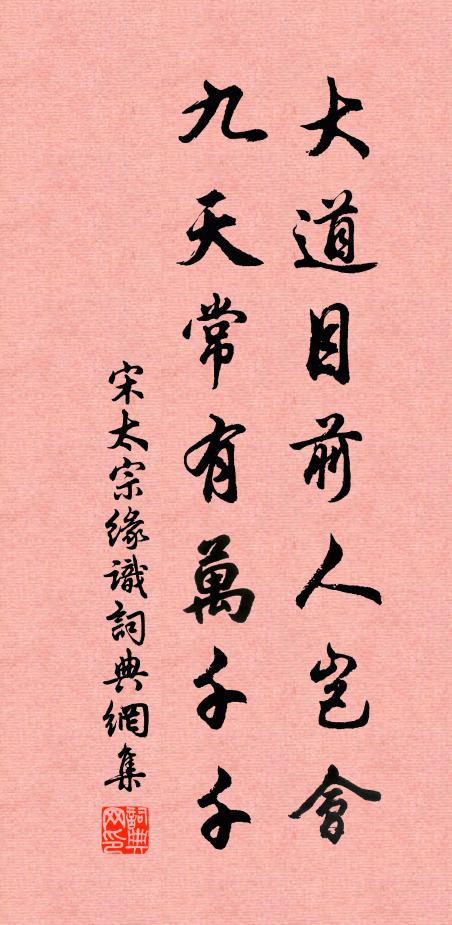 大道目前人豈會
九天常有萬千千
宋太宗緣識詞典網集
詞典网印